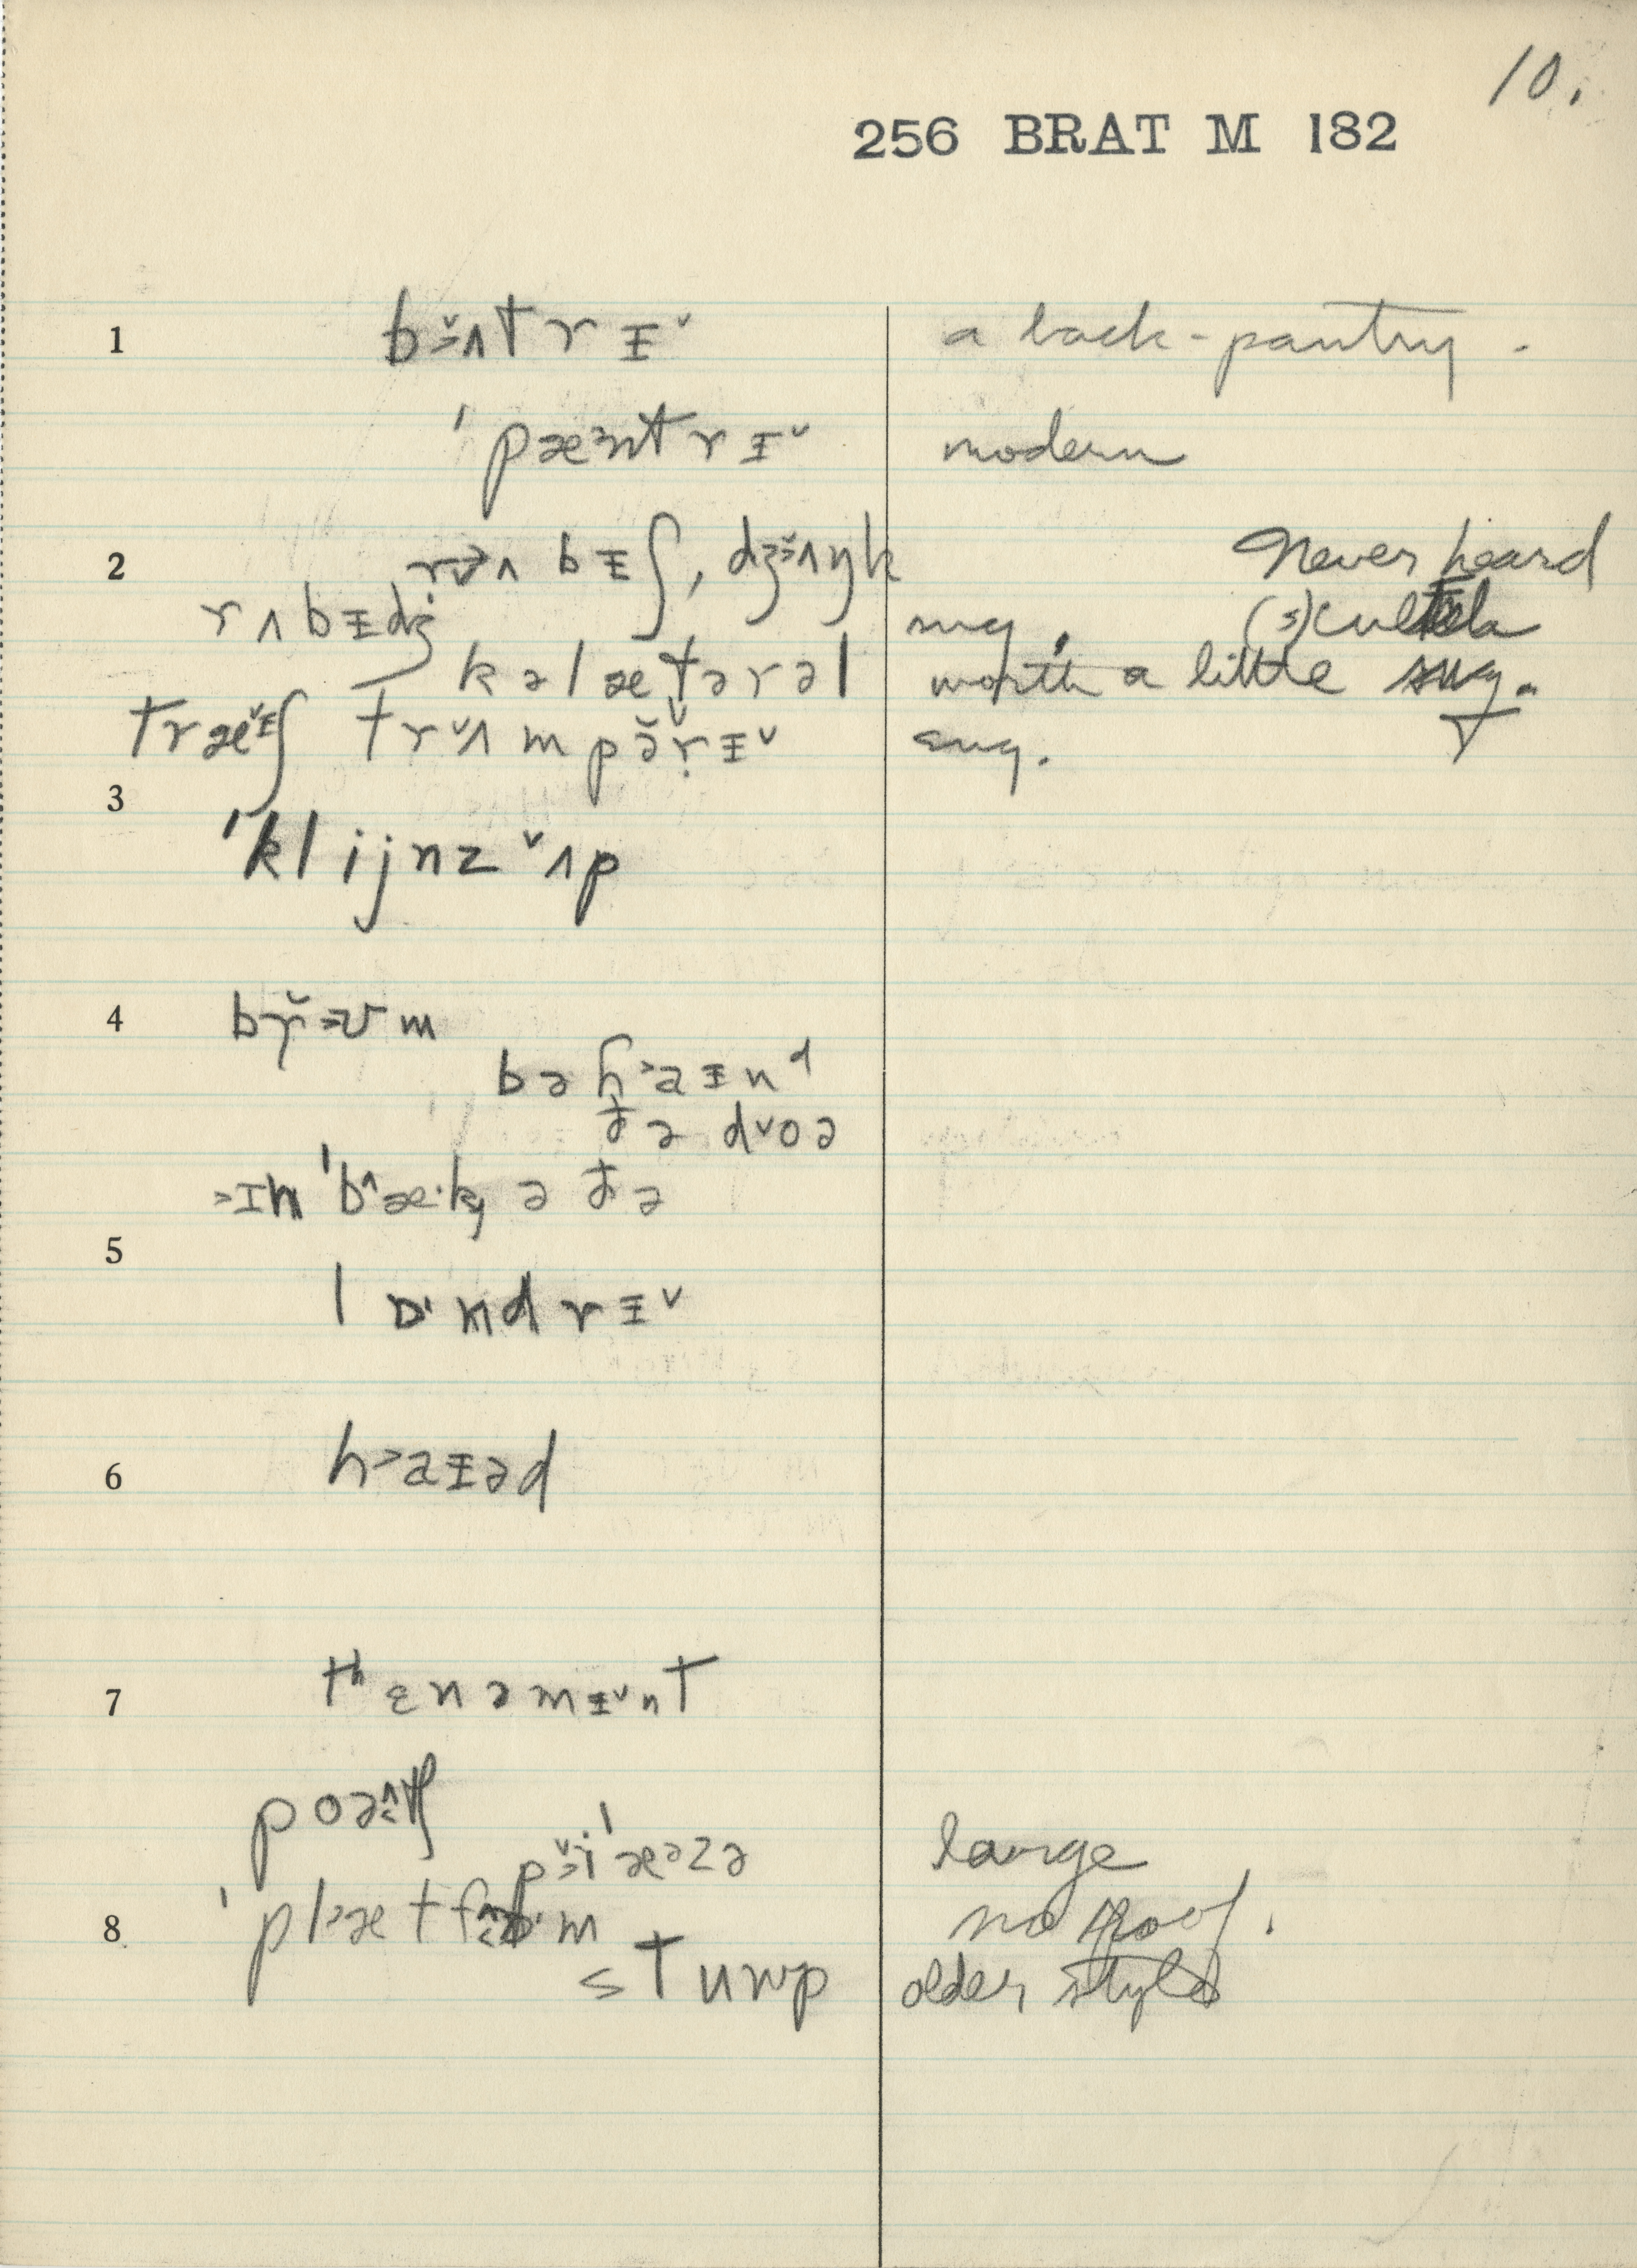 10.
256 BRAT M 182
1 bʌtrɨ˅ a back-pantry.
ˈpæntrɨ˅ modern
2 rʌbɨʃ, dʒʌŋk Never heard
rʌbɨdʒ sug.
kəlætərəl worth a little sug.
træɨʃ trʌmpərɨ˅ sug.
3
ˈklijnz ʌp
4 brʊm
bəhaɨnd
ðə doə
ɪn ˈbæ·k ə ðə
5
lɒ·ndrɨ˅
6 haɨəd
7 tʰɛnəmɨ˅nt
poətʃ
piˈæᵊzə large
8 ˈplætfɒ·m no roof.
stump older style